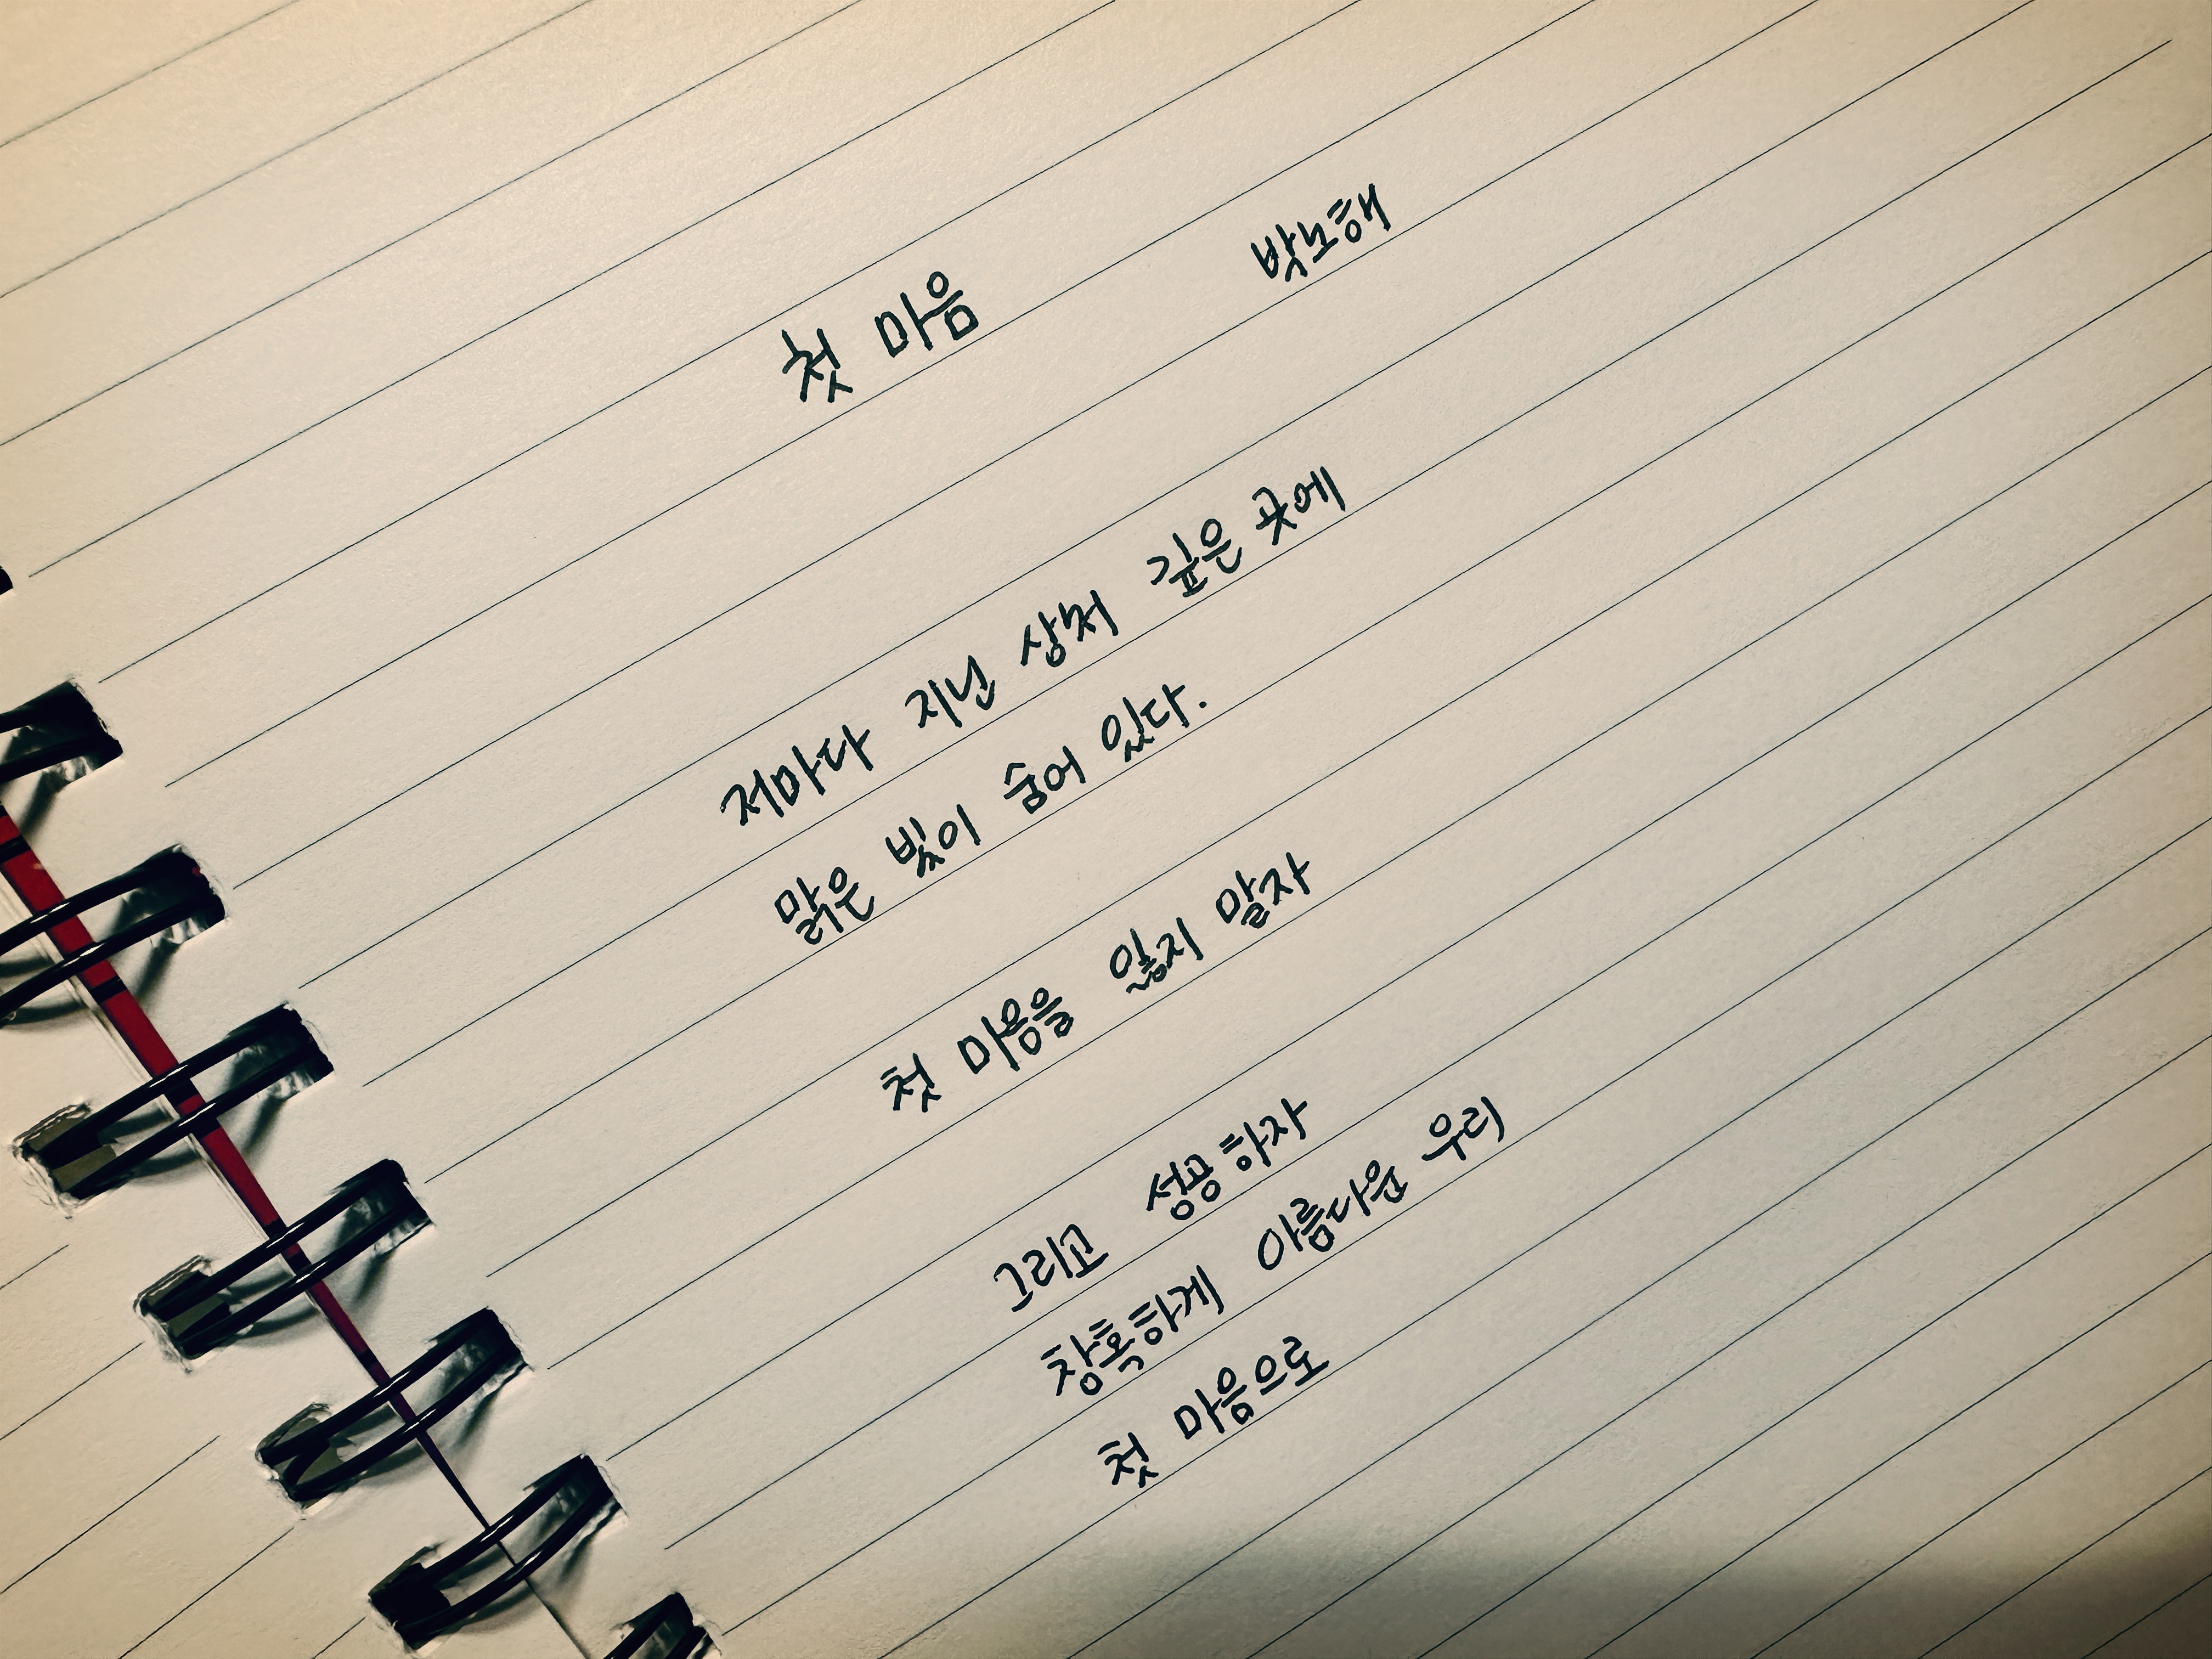 첫 마음
박노해
저마다 지닌 상처 깊은 곳에
맑은 빛이 숨어 있다.
첫 마음을 잃지 말자
그리고 성공하자
참혹하게 아름다운 우리
첫 마음으로